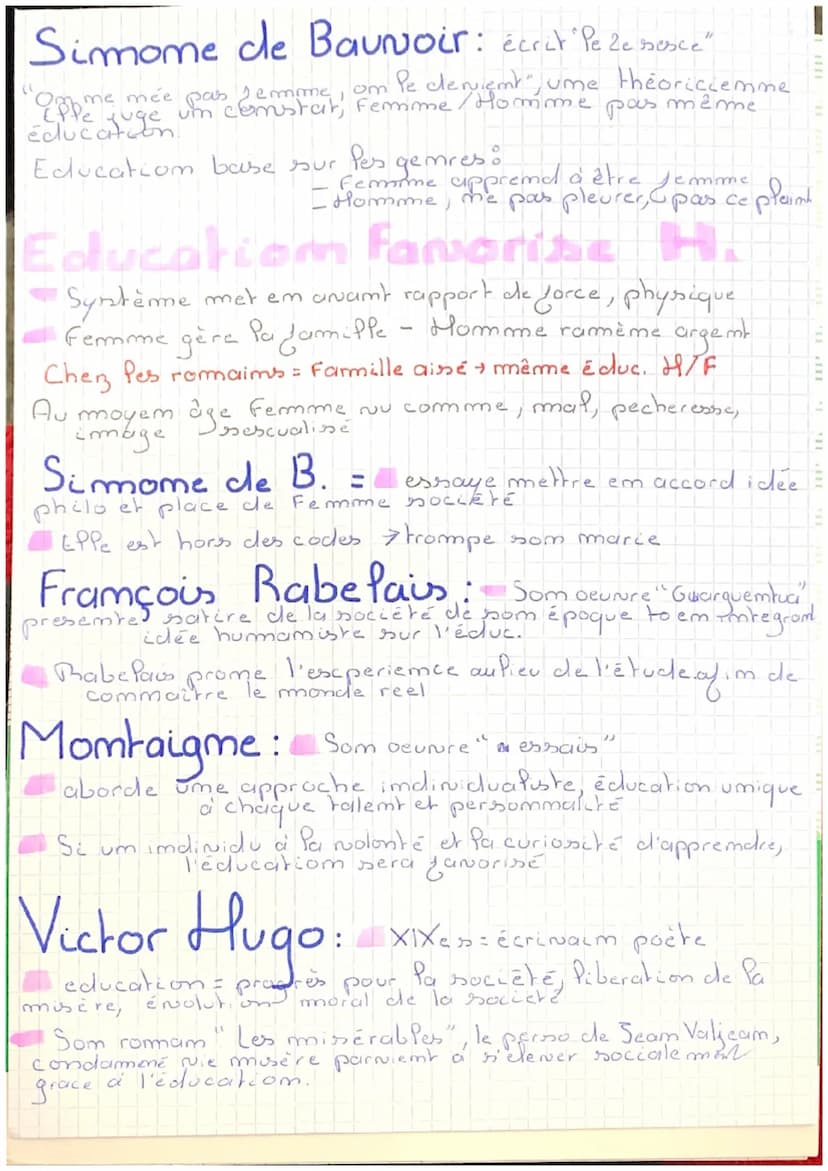 Simmome de Bauvoir : écrit "le 2e sesce"
"On me mée pas femme, om le devient", ume théoriciemme
Elle juge um comstat, Femme / Homme pas même
éducation.
Education base sur les genres :
- Femme apprend à être femme
- Homme, me pas pleurer, pas ce plaint
Education Favorise H.
Système met em avamt rapport de force, physique
Femme gère la famille - Homme ramème argent
Chez les romains = Famille aisé → même éduc. H/F
Au moyem âge Femme vu comme, mal, pecheresse,
image sescualisé
Simmome de B. = essaye mettre em accord idée
philo et place de Femme société
Elle est hors des codes → trompe som marie
François Rabelais : Som oeuvre "Guarguemtua"
presemte satire de la société de som époque to em integrant
idée humamiste sur l'éduc.
Rabelais prome l'escperiemce au lieu de l'étude afim de
commaître le monde reel
Momtaigme : Som oeuvre " essais"
aborde ume approche imdividualiste, éducation umique
à chaque tallemt et persommalité
Si um imdividu à la volonté et la curiosité d'appremdre,
l'éducatiom sera favorisé
Victor Hugo : XIXe s = écrivaim poète
education = progrès pour la société, liberation de la
misère, évolution moral de la société
Som romam "Les misérables", le perso de Jeam Valjeam,
condammé vie misère parviemt à s'élever socialement
grace à l'éducatiom.